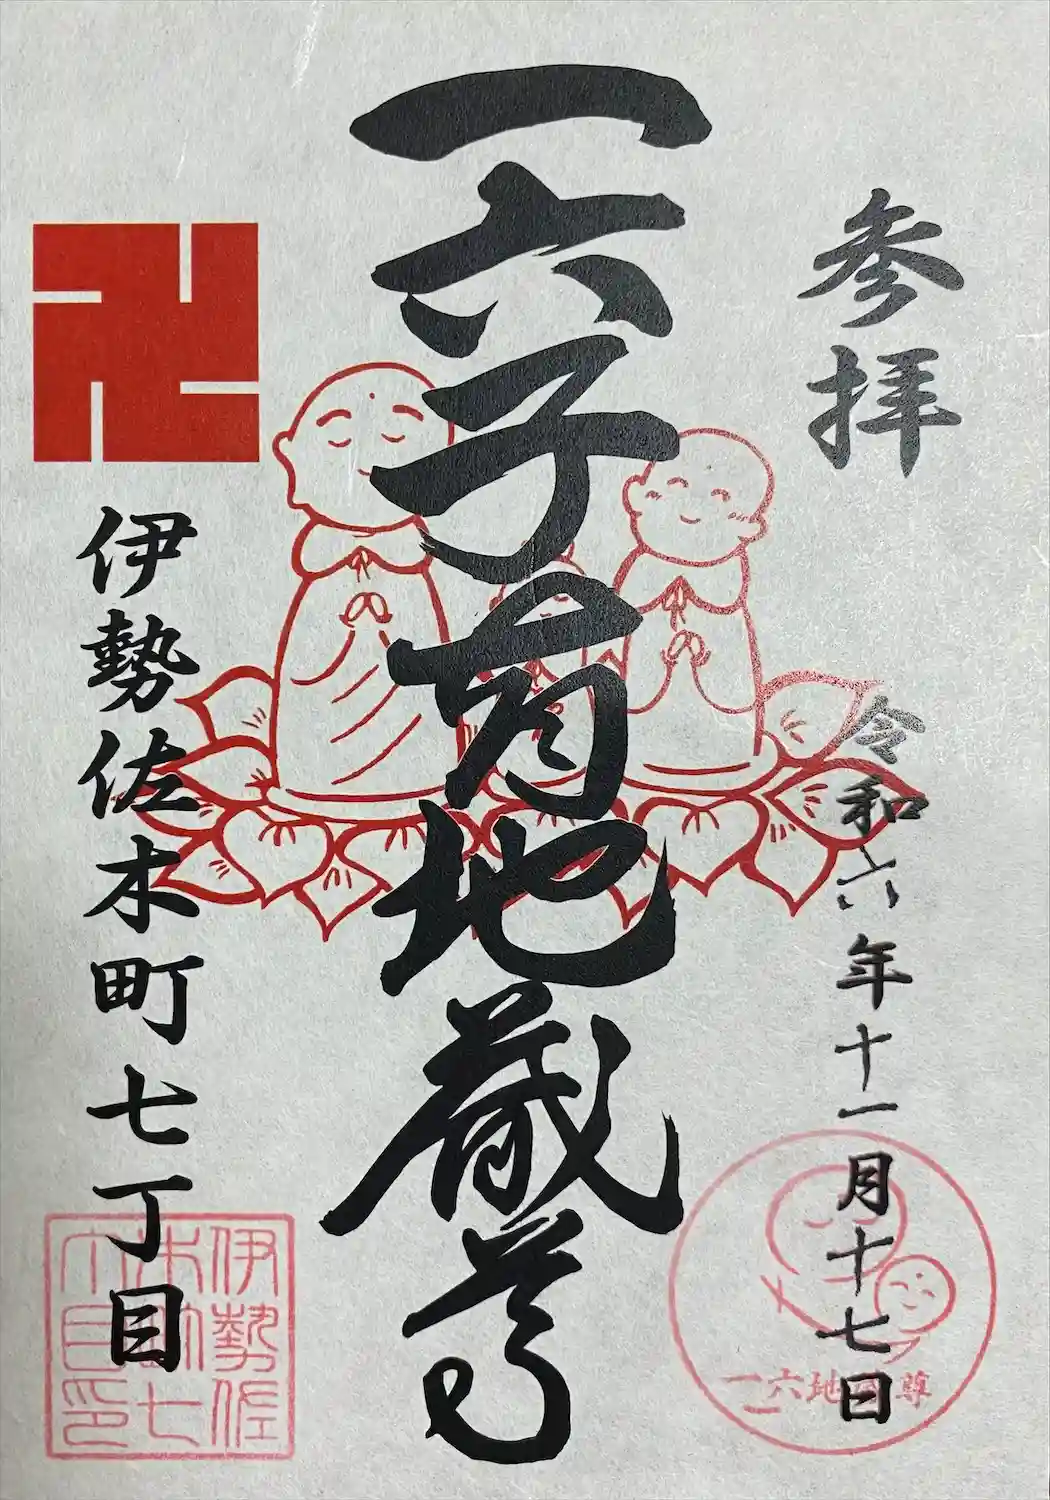 参拝
令和六年十一月十七日
一六地蔵尊
一六子育地蔵尊
卍
伊勢佐木町七丁目
伊勢佐
木町七
丁目印